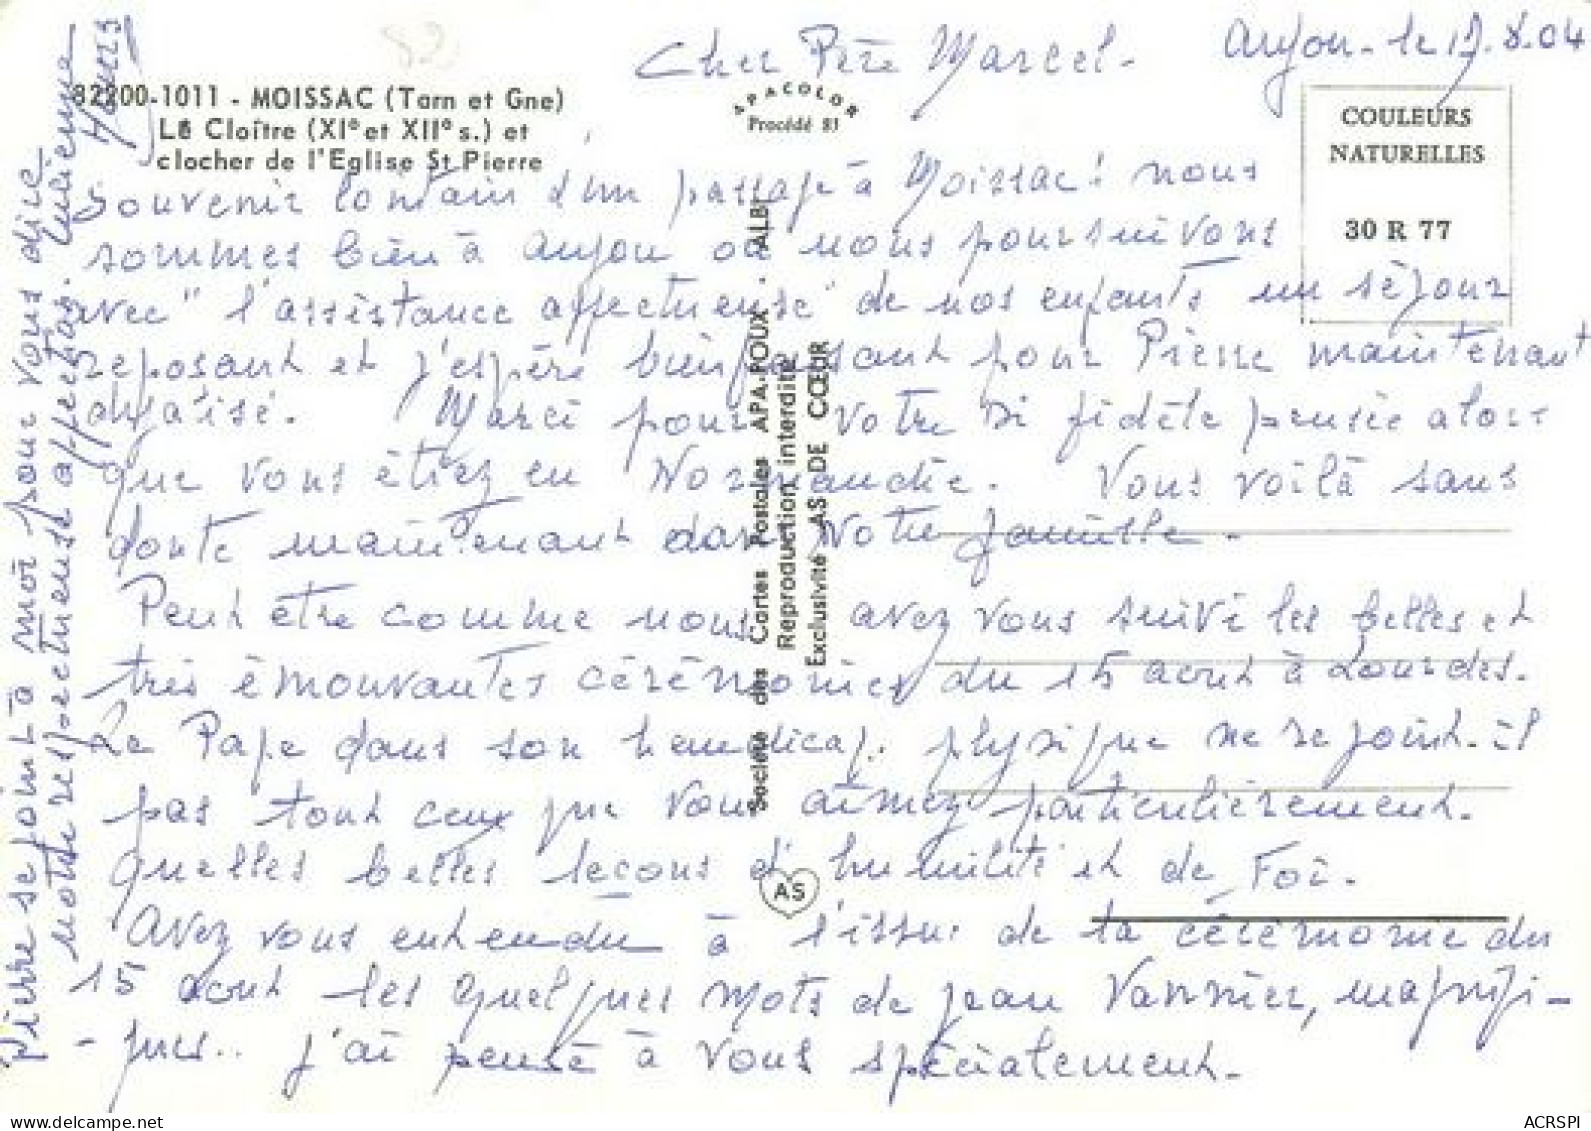 82
Cher Père Marcel - Anjou - le 17.8.04
82200-1011 - MOISSAC (Tarn et Gne)
Le Cloître (XIe et XIIe s.) et
clocher de l'Eglise St Pierre
APACOLOR
Procédé 81
COULEURS
NATURELLES
30 R 77
Souvenir lointain d'un passage à Moissac! nous
sommes bien à Anjou où nous poursuivons
avec "l'assistance affectueuse" de nos enfants un séjour
reposant et j'espère bienfaisant pour Pierre maintenant
Merci pour votre si fidèle pensée alors
que vous étiez en Normandie. Vous voilà sans
doute maintenant dans votre famille.
Peut être comme nous avez vous suivi les belles et
très émouvantes cérémonies du 15 aout à Lourdes.
Le Pape dans son handicap physique ne rejoint-il
pas tout ceux que vous aimez particulièrement.
quelles belles leçons d'humilité et de Foi.
Avez vous entendu à l'issue de la cérémonie du
15 aout les quelques mots de Jean Vannier, magnifi-
-ques.. j'ai pensé à vous spécialement.
Pierre se joint à moi pour vous dire
notre respectueuse affection. Lucienne
Société des Cartes Postales APA-POUX - ALBI
Reproduction interdite
Exclusivité AS DE CŒUR
AS
delcampe.net
ACRSPI